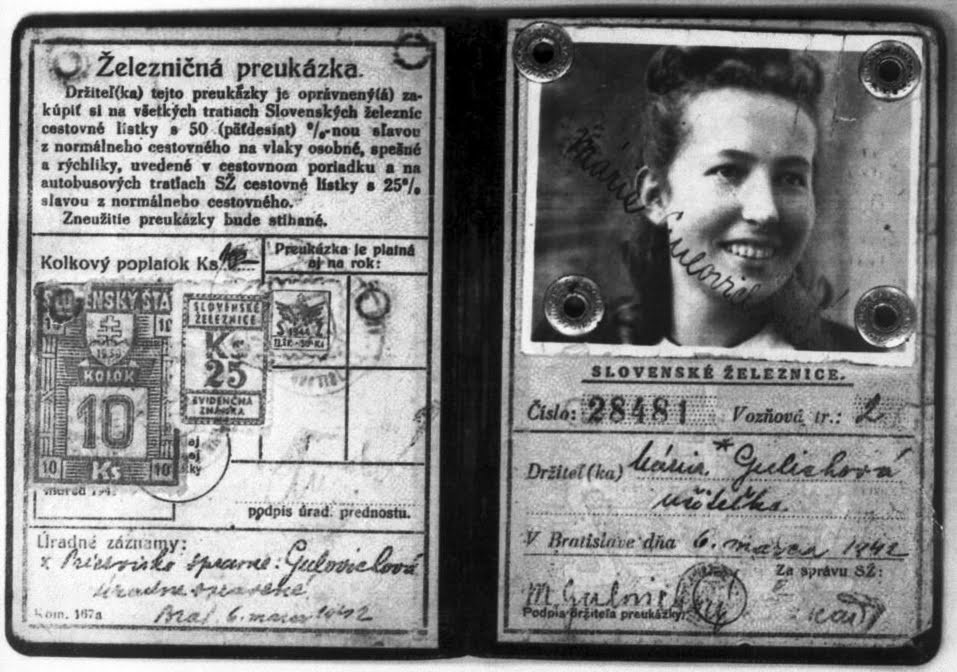 Železničná preukázka.
Držiteľ(ka) tejto preukázky je oprávnený(á) za-
kúpiť si na všetkých tratiach Slovenských železnic
cestovné lístky s 50 (päťdesiat) %-nou slavou
z normálneho cestovného na vlaky osobné, spešné
a rýchliky, uvedené v cestovnom poriadku a na
autobusových tratiach SŽ cestovné lístky s 25%
slavou z normálneho cestovného.
Zneužitie preukázky bude stíhané.
Kolkový poplatok Ks
Preukázka je platná
aj na rok:
SLOVENSKÝ ŠTÁT
10 10
1939
KOLOK
10
10 Ks 10
SLOVENSKÉ
ŽELEZNICE
Ks
25
EVIDENČNÁ
ZNÁMKA
podpis úrad. prednostu.
Úradné záznamy:
Priezvisko správne: Gulovichová
Úradne opravené
Brat. 6. marca 1942
Kom. 167a
Mária Gulovich
SLOVENSKÉ ŽELEZNICE.
Číslo: 28481 Vozňová tr.: 2
Držiteľ(ka) Mária * Gulichová
učiteľka
V Bratislave dňa 6. marca 1942
Za správu SŽ:
M Gulovich
Podpis držiteľa preukázky: